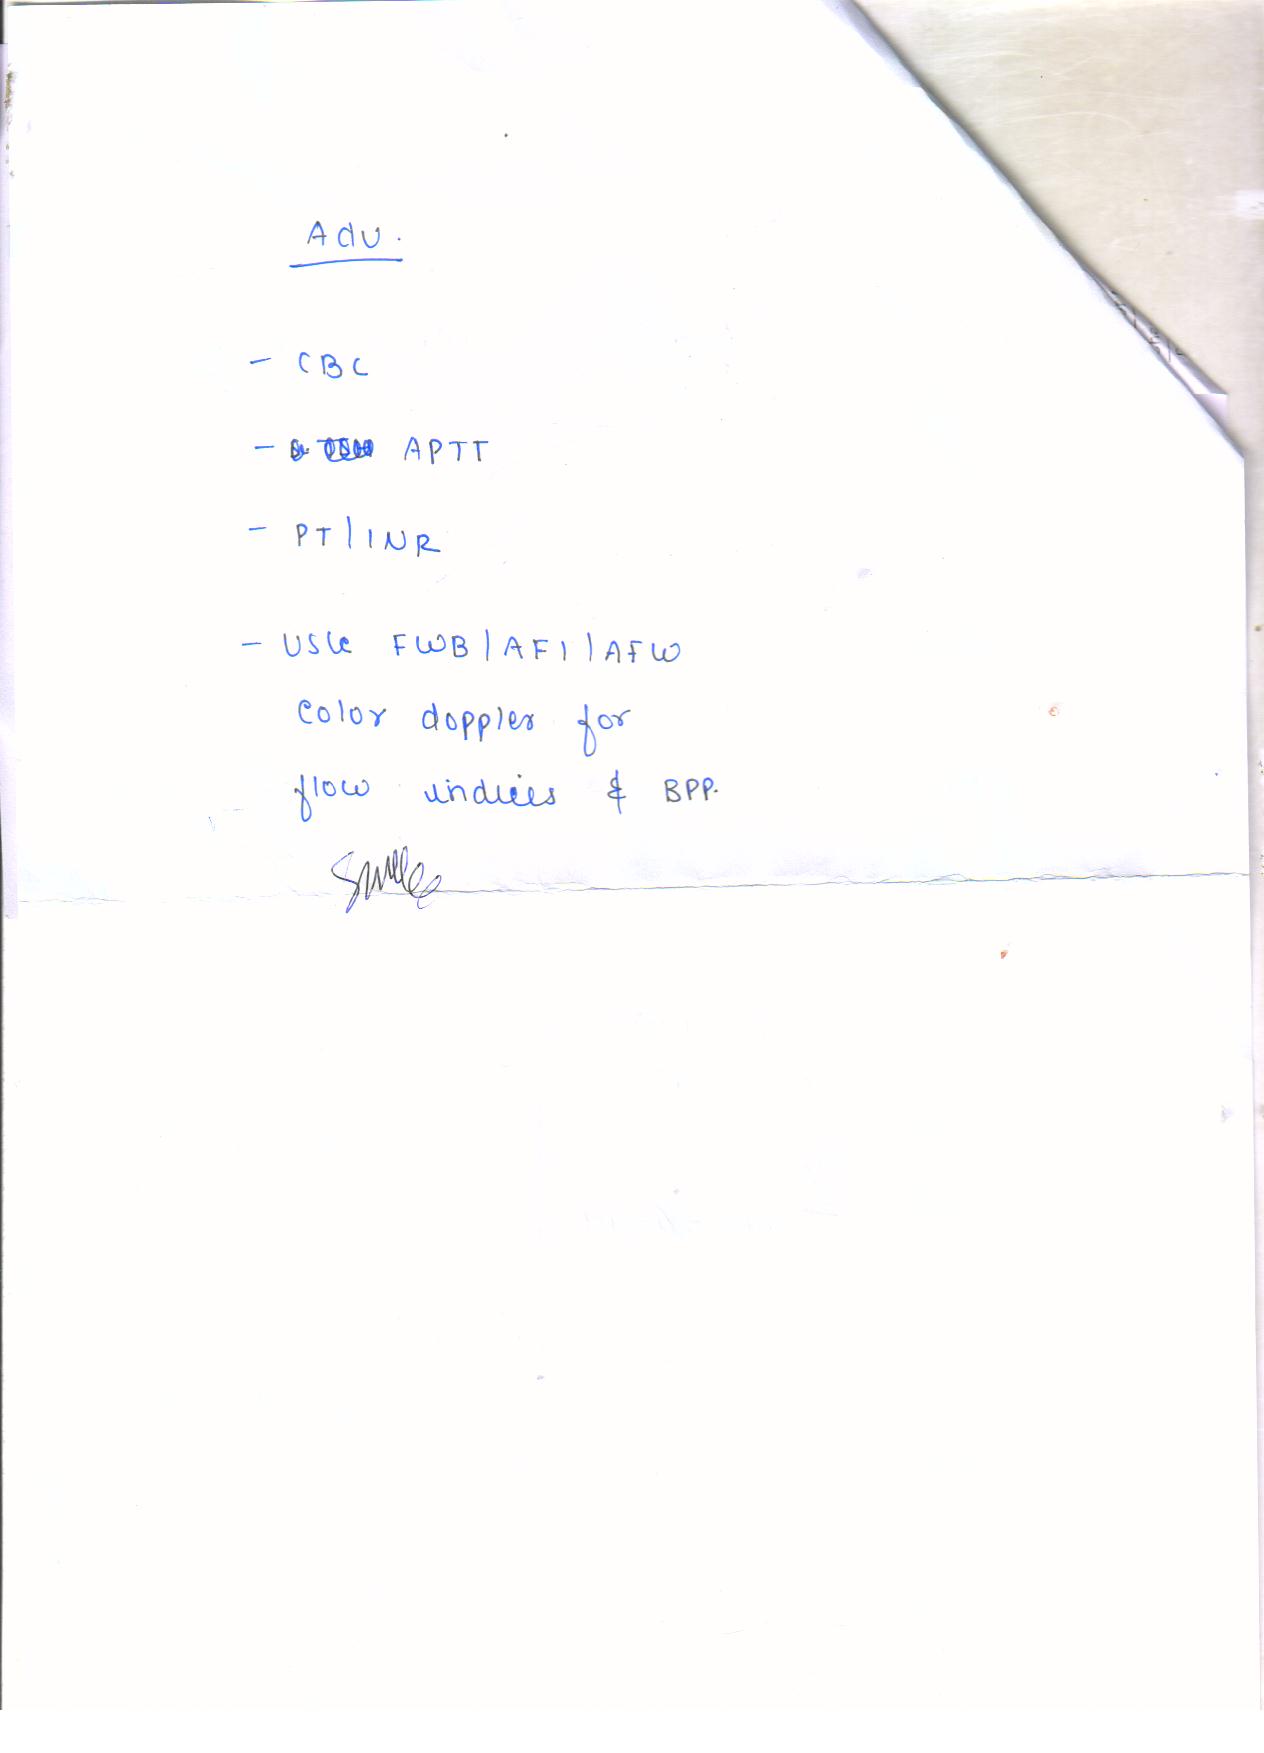 Adv.
- CBC
- APTT
- PT/INR
- USG FWB/AFI/AFW
color doppler for
flow indices & BPP.